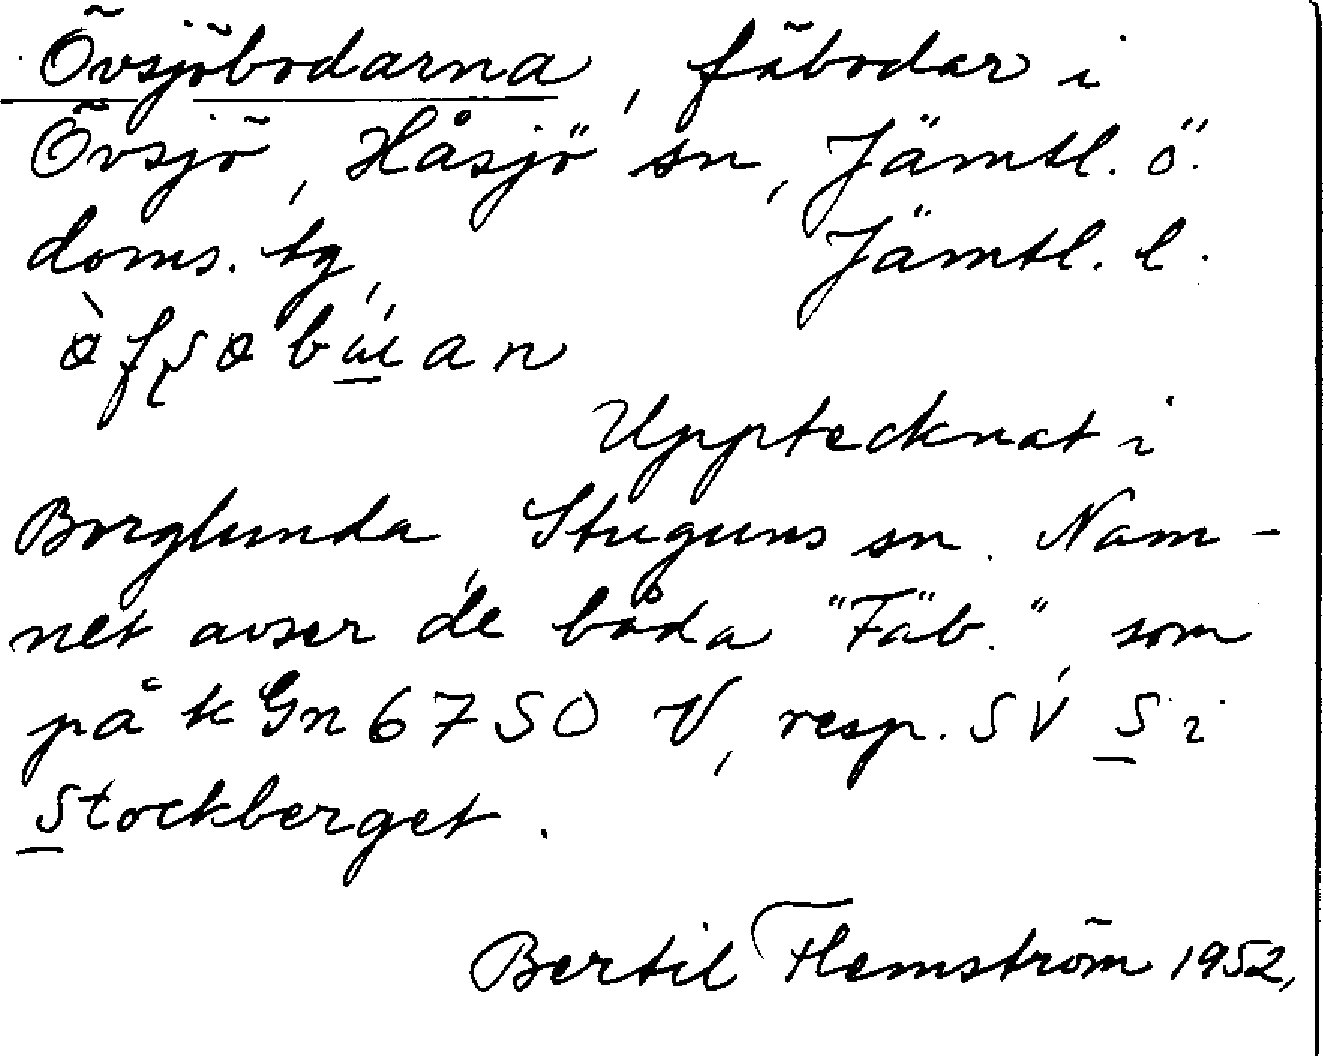 Övsjöbodarna, fäbodar i
Övsjö, Håsjö sn, Jämtl. ö.
doms. tg, Jämtl. l.
Upptecknat i
Borglunda, Stuguns sn. Nam-
net avser de båda "Fäb.", som
på k Gn 6750 V, resp. SV S i
Stockberget.
Bertil Flemström 1952,